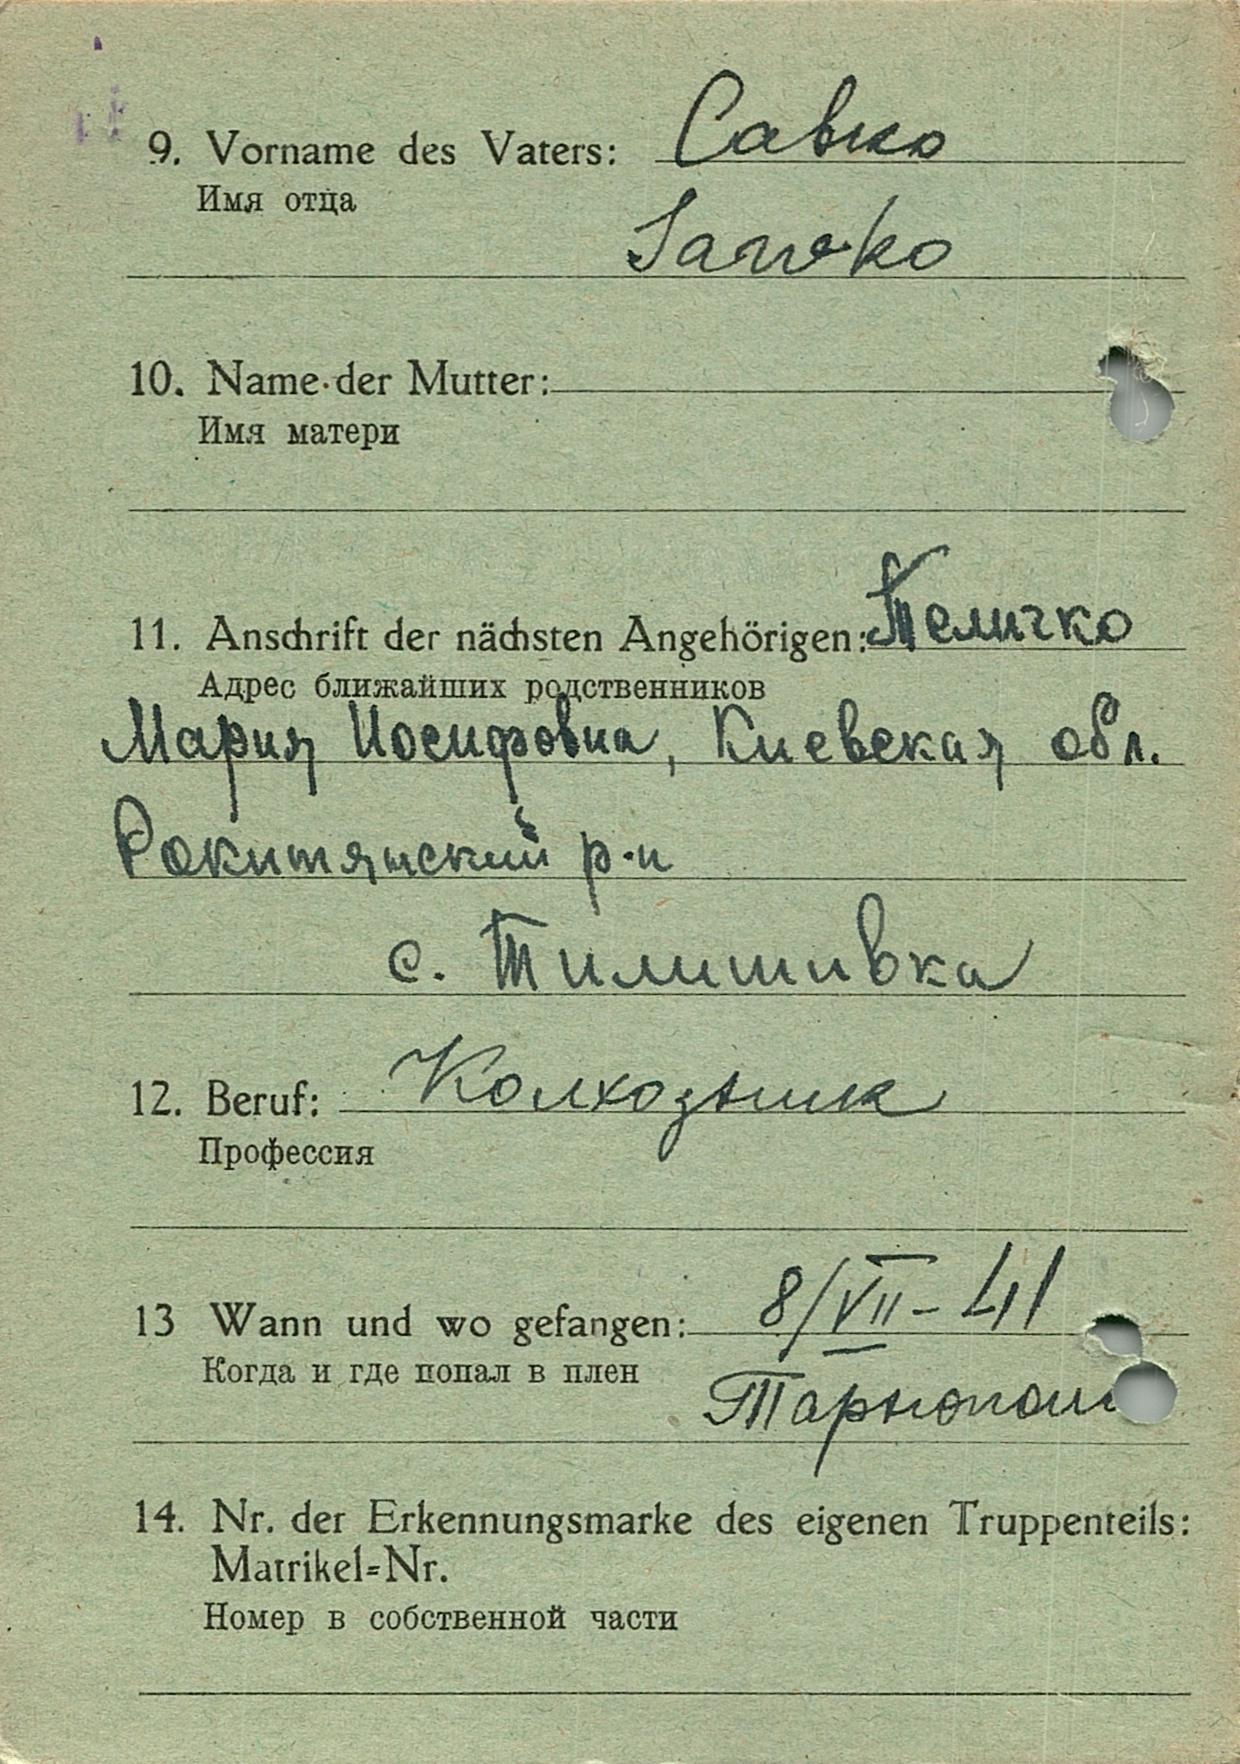 9. Vorname des Vaters: Савко
Имя отца
Sawko
10. Name der Mutter:
Имя матери
11. Anschrift der nächsten Angehörigen: Теличко
Адрес ближайших родственников
Мария Иосифовна, Киевская обл.
Рокитянский р-н
с. Тилишивка
12. Beruf: Колхозник
Профессия
13 Wann und wo gefangen: 8/VII-41
Когда и где попал в плен
Тарнополь
14. Nr. der Erkennungsmarke des eigenen Truppenteils:
Matrikel=Nr.
Номер в собственной части